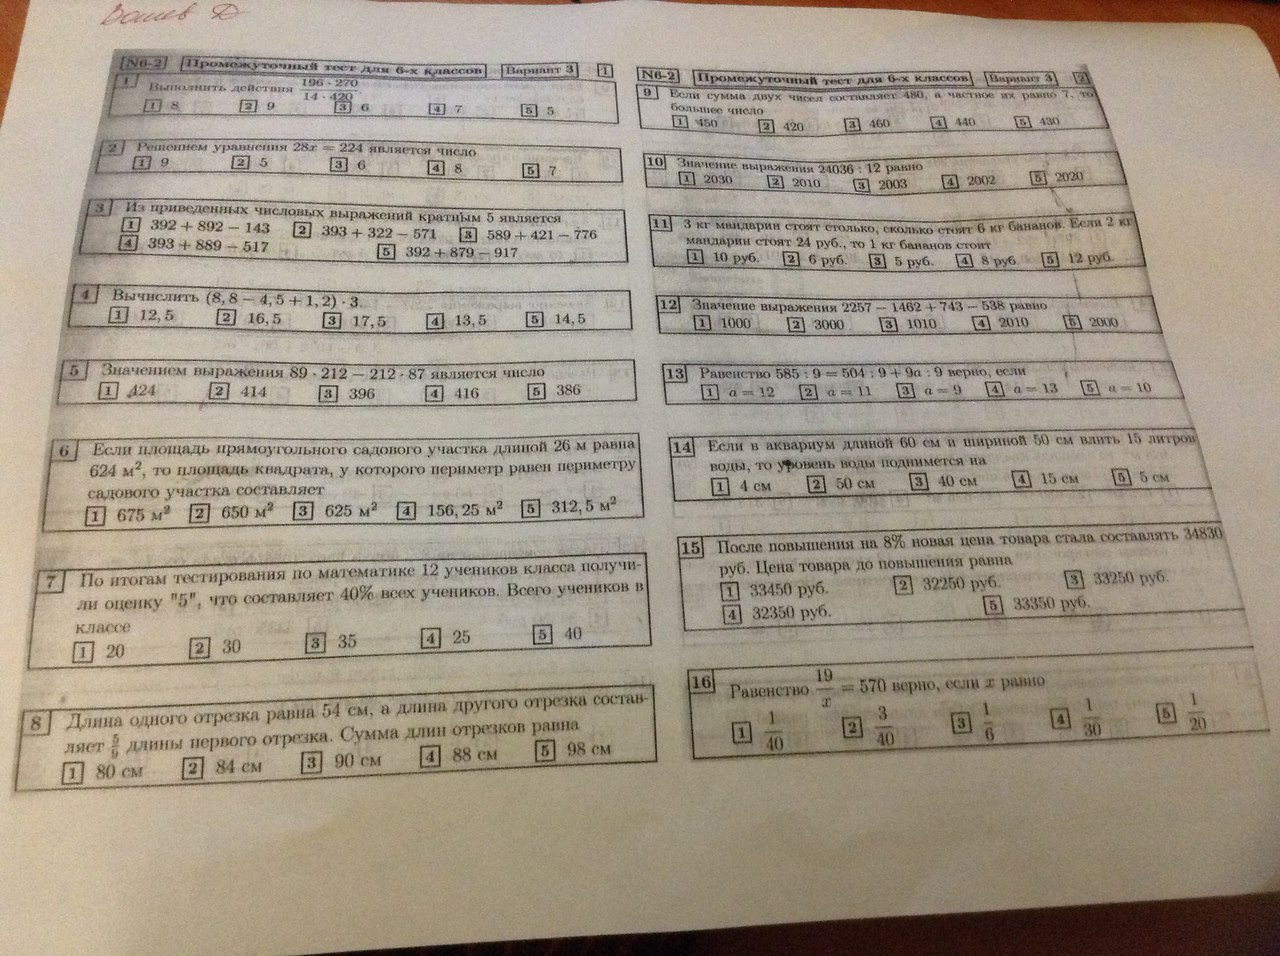 N6-2 Промежуточный тест для 6-х классов Вариант 3 1
1 Выполнить действия 196 · 270 / 14 · 420
1 8 2 9 3 6 4 7 5 5
2 Решением уравнения 28x = 224 является число
1 9 2 5 3 6 4 8 5 7
3 Из приведенных числовых выражений кратным 5 является
1 392 + 892 − 143 2 393 + 322 − 571 3 589 + 421 − 776
4 393 + 889 − 517 5 392 + 879 − 917
4 Вычислить (8,8 − 4,5 + 1,2) · 3
1 12,5 2 16,5 3 17,5 4 13,5 5 14,5
5 Значением выражения 89 · 212 − 212 · 87 является число
1 424 2 414 3 396 4 416 5 386
6 Если площадь прямоугольного садового участка длиной 26 м равна
624 м², то площадь квадрата, у которого периметр равен периметру
садового участка составляет
1 675 м² 2 650 м² 3 625 м² 4 156,25 м² 5 312,5 м²
7 По итогам тестирования по математике 12 учеников класса получи-
ли оценку "5", что составляет 40% всех учеников. Всего учеников в
классе
1 20 2 30 3 35 4 25 5 40
8 Длина одного отрезка равна 54 см, а длина другого отрезка состав-
ляет 5/9 длины первого отрезка. Сумма длин отрезков равна
1 80 см 2 84 см 3 90 см 4 88 см 5 98 см
N6-2 Промежуточный тест для 6-х классов Вариант 3 2
9 Если сумма двух чисел составляет 480, а частное их равно 7, то
большее число
1 450 2 420 3 460 4 440 5 430
10 Значение выражения 24036 : 12 равно
1 2030 2 2010 3 2003 4 2002 5 2020
11 3 кг мандарин стоят столько, сколько стоят 6 кг бананов. Если 2 кг
мандарин стоят 24 руб., то 1 кг бананов стоит
1 10 руб. 2 6 руб. 3 5 руб. 4 8 руб 5 12 руб.
12 Значение выражения 2257 − 1462 + 743 − 538 равно
1 1000 2 3000 3 1010 4 2010 5 2000
13 Равенство 585 : 9 = 504 : 9 + 9a : 9 верно, если
1 a = 12 2 a = 11 3 a = 9 4 a = 13 5 a = 10
14 Если в аквариум длиной 60 см и шириной 50 см влить 15 литров
воды, то уровень воды поднимется на
1 4 см 2 50 см 3 40 см 4 15 см 5 5 см
15 После повышения на 8% новая цена товара стала составлять 34830
руб. Цена товара до повышения равна
1 33450 руб. 2 32250 руб. 3 33250 руб.
4 32350 руб. 5 33350 руб.
16 Равенство 19/x = 570 верно, если x равно
1 1/40 2 3/40 3 1/6 4 1/30 5 1/20